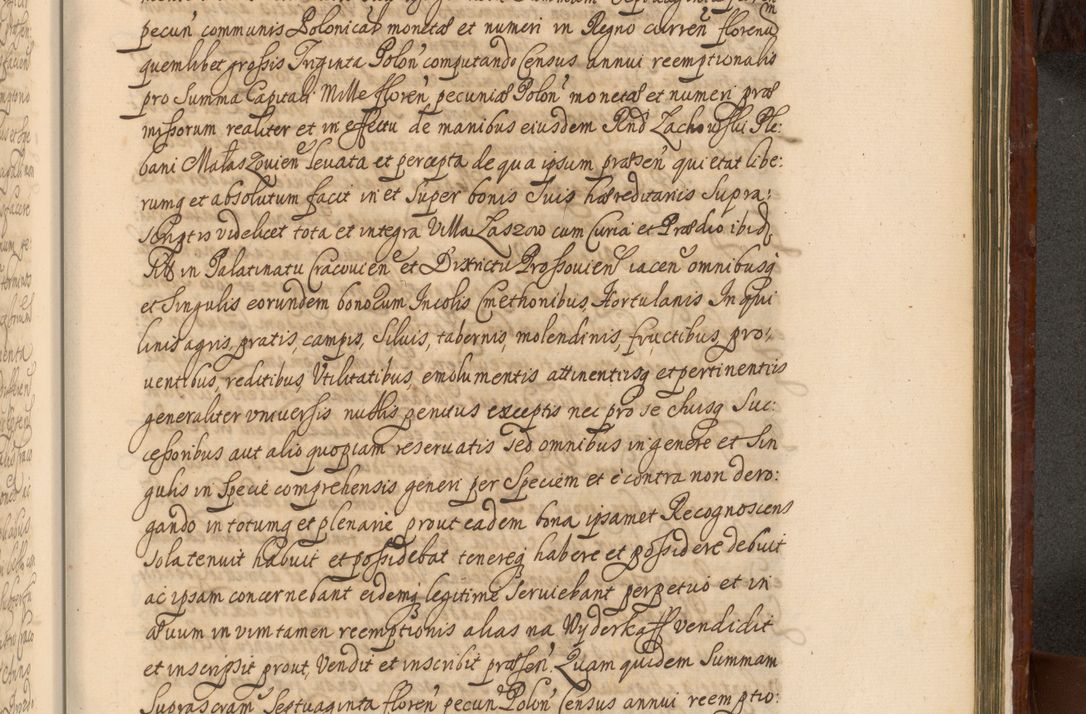 pecun̄ communis Polonicæ monetæ et numeri in Regno curren̄ florenū
quemlibet grossis Triginta Polon̄ computando Census annui reemptionalis
pro Summa Capitali Mille floren̄ pecuniæ Polon̄ monetæ et numeri præ
missorum realiter et in effectu de manibus eiusdem Rnd Zachowski Ple:
bani Matas Zovien̄ levata et percepta de qua ipsum præsen̄ quietat libe:
rumq et absolutum facit in et Super bonis Suis hæreditariis Supra:
scriptis videlicet tota et integra Villa Laszow cum Curia et Prædio ibid
in Palatinatu Cracovien̄ et Districtu Prossovien̄ iacen̄ omnibusq
et Singulis eorundem bonorum Incolis Cmethonibus Hortulanis Inqui
linis agris, pratis, campis, Silvis, tabernis, molendinis, fructibus, pro:
ventibus, reditibus, Utilitatibus, emolumentis attinentiisq et pertinentiis
generaliter universis nullis penitus exceptis nec pro se eiusq Suc:
cessoribus aut alio quopiam reservatis sed omnibus in genere et Sin
gulis in Specie comprehensis generi per Speciem et e contra non dero:
gando in totumq et plenarie prout eadem bona ipsamet Recognoscens
sola tenuit habuit et possidebat tenereq habere et possidere debuit
ac ipsam concernebant eidemq legitime Serviebant perpetuo et in
ævum in vim tamen reemptionis alias na Wyderkaff vendidit
et inscripsit prout Vendit et inscribit præsen̄. Quam quidem Summam
Suprascram Septuaginta floren̄ pecun̄ Polon̄ Census annui reemptio: